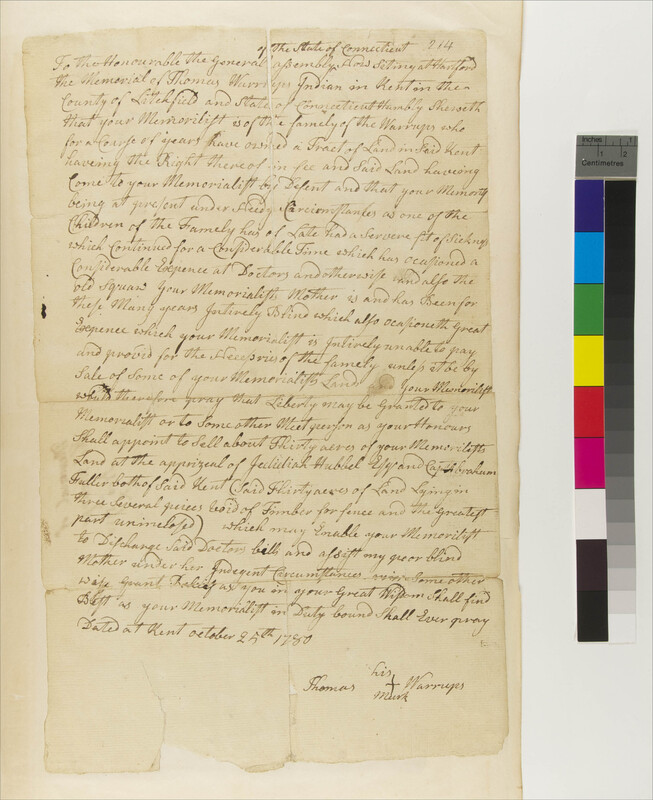 of The State of Connecticut 214
To the Honourable the General assembly Now Siting at Hartford
the Memorial of Thomas Warrups Indian in Kent in the
County of Litchfield and State of Connecticut Humbly Sheweth
that your Memorilist is of the family of the Warrups who
for a Coarse of years have owned a Tract of Land in Said Kent
haveing the Right thereof in fee and Said Land haveing
Come to your Memorialist by Desent and that your Memorist
being at present under Needy Carcimstances as one of the
Children of the Famely has of Late had a Servere fit of Sickness
which Continued for a Considerable Time which has ocasioned a
Considerable Expence at Doctors and otherwise and also the
old Squaw your Memorialists Mother is and has Been for
these Many years Intirely Blind which also ocasioneth Great
Expence which your Memorialist is Intirely unable to pay
and provid for the Necesries of the family unless it be by
Sale of Some of your Memorialists Land your Memorilist
would therefore pray that Liberty may be Granted to your
Memorialist or to Some other Meet person as your Honours
Shall appoint to Sell about Thirty acres of your Memorilists
Land at the apprizeal of Hubbel Esqr and Capt Abraham
Fuller both of Said Kent (Said Thirty acres of Land Lying in
three Several peices void of Timber for fence and the Greatest
part uninclosed) which may Enable your Memorilist
to Discharge Said Doctors bills and assist my poor blind
Mother under her Indegent Circumstances Some other
wise Grant Relief as you in your Great Wisdom Shall find
Best as your Memorialist in Duty bound Shall Ever pray
Dated at Kent october 25th 1780
his
Thomas Warrups
Mark
Inches 1 2
Centimetres